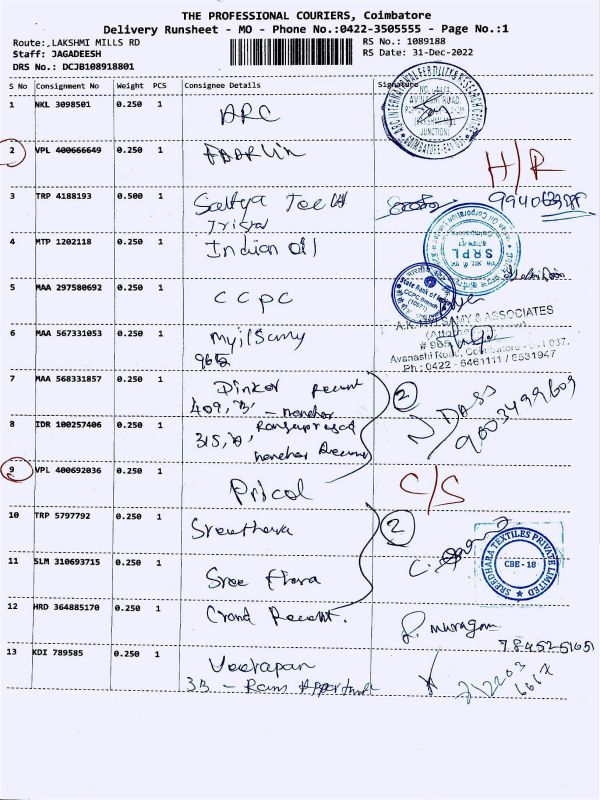 THE PROFESSIONAL COURIERS, Coimbatore
Delivery Runsheet - MO - Phone No.:0422-3505555 - Page No.:1
Route:,LAKSHMI MILLS RD
RS No.: 1089188
Staff: JAGADEESH
RS Date: 31-Dec-2022
DRS No.: DCJB108918801
S No Consignment No Weight PCS Consignee Details Signature
1 NKL 3098501 0.250 1 ARC
2 VPL 400666649 0.250 1 H/R
3 TRP 4188193 0.500 1 Sattya Tech
Tristar
4 MTP 1202118 0.250 1 Indian Oil
SRPL
5 MAA 297580692 0.250 1 CCPC
State Bank of India
CCPC Branch
6 MAA 567331053 0.250 1 Myilsamy
965
& ASSOCIATES
# 965
Avanashi Road, Coimbatore - 641 037.
Ph : 0422 - 6461111 / 6531947
7 MAA 568331857 0.250 1 Dinkar
409, 'B', - manchar
2
N DASS
9003499609
8 IDR 100257406 0.250 1 Ramaprasad
315, 'A', manchar
9 VPL 400692036 0.250 1 Pricol C/S
10 TRP 5797792 0.250 1 Sreethara
2
11 SLM 310693715 0.250 1 Sree
SREEDHARA TEXTILES PRIVATE LIMITED
CBE - 18
12 HRD 364885170 0.250 1 Grand
P. Murugan
13 KDI 789585 0.250 1 Veerapan
3B - Rams Appartment